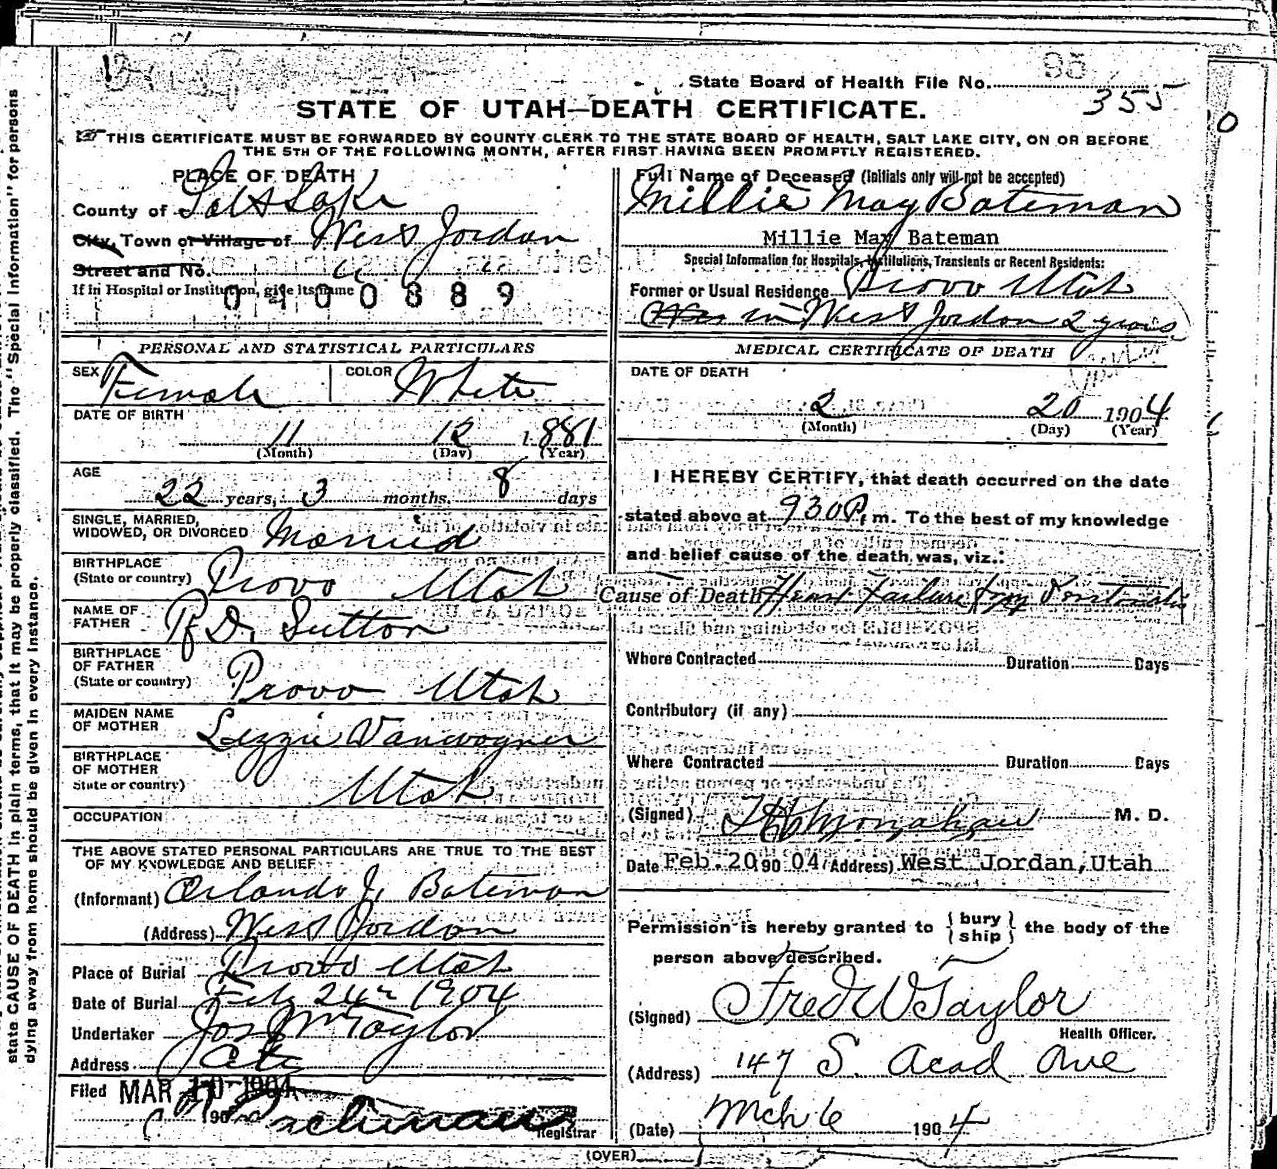 95
State Board of Health File No.
355
STATE OF UTAH—DEATH CERTIFICATE.
THIS CERTIFICATE MUST BE FORWARDED BY COUNTY CLERK TO THE STATE BOARD OF HEALTH, SALT LAKE CITY, ON OR BEFORE
THE 5TH OF THE FOLLOWING MONTH, AFTER FIRST HAVING BEEN PROMPTLY REGISTERED.
PLACE OF DEATH
County of Salt Lake
City, Town or Village of West Jordan
Street and No. " "
If in Hospital or Institution, give its name
0400889
PERSONAL AND STATISTICAL PARTICULARS
SEX Female COLOR White
DATE OF BIRTH
11 12 1881
(Month) (Day) (Year)
AGE
22 years, 3 months, 8 days
SINGLE, MARRIED,
WIDOWED, OR DIVORCED Married
BIRTHPLACE
(State or country) Provo Utah
NAME OF
FATHER D. Sutton
BIRTHPLACE
OF FATHER
(State or country) Provo Utah
MAIDEN NAME
OF MOTHER Lizzie Vanwagner
BIRTHPLACE
OF MOTHER
State or country) Utah
OCCUPATION
THE ABOVE STATED PERSONAL PARTICULARS ARE TRUE TO THE BEST
OF MY KNOWLEDGE AND BELIEF
(Informant) Orlando J. Bateman
(Address) West Jordan
Place of Burial Provo Utah
Date of Burial Feb 24th 1904
Undertaker Jos W Taylor
Address
Filed MAR 10 1904
190
Registrar
Full Name of Deceased (Initials only will not be accepted)
Millie May Bateman
Millie May Bateman
Special Information for Hospitals, Institutions, Transients or Recent Residents:
Former or Usual Residence Provo Utah
Was in West Jordan 2 years
MEDICAL CERTIFICATE OF DEATH
DATE OF DEATH
2 20 1904
(Month) (Day) (Year)
I HEREBY CERTIFY, that death occurred on the date
stated above at 930 P. m. To the best of my knowledge
and belief cause of the death was, viz.:
Cause of Death Heart Failure
Where Contracted Duration Days
Contributory (if any)
Where Contracted Duration Days
(Signed) M. D.
Date Feb. 20 90 04 (Address) West Jordan, Utah
Permission is hereby granted to {bury
ship} the body of the
person above described.
(Signed) Fred W Taylor
Health Officer.
(Address) 147 S. Acad Ave
(Date) Mch 6 1904
(OVER)
state CAUSE OF DEATH in plain terms, that it may be properly classified. The "Special Information" for persons
dying away from home shoule be given in every instance.